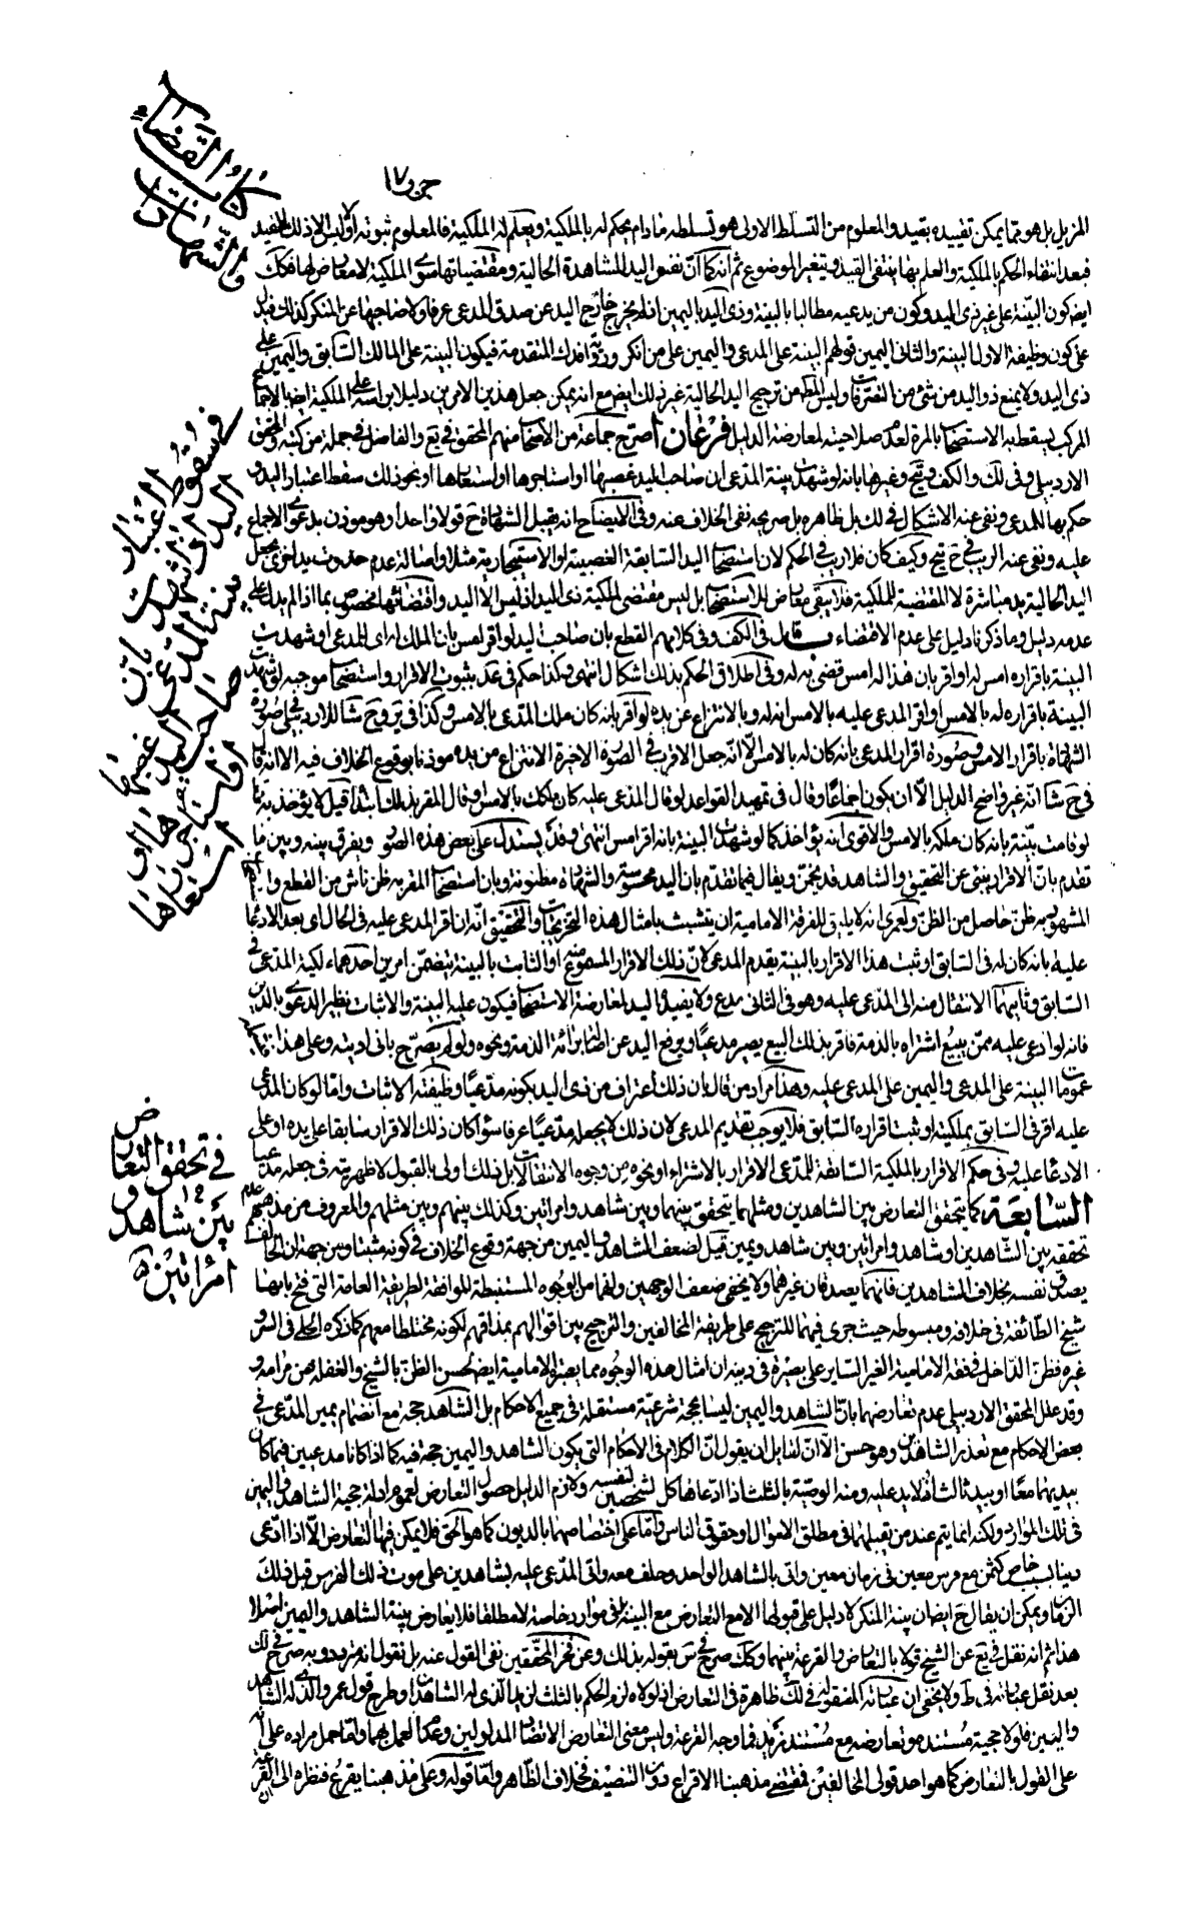 كتاب القضاء
والشهادات
جزو ١٧
المزيل بل هو مما يمكن تقييده بقيد والمعلوم من التسلط الاولى هو تسلطه مادام يحكم له بالملكية ويعلم له الملكية فالمعلوم ثبوته اولا ليس الا ذلك المقيد
فبعد انتفاء الحكم بالملكية والعلم بها ينتفى القيد ويتغير الموضوع ثم انه كما ان نفس اليد المشاهدة الحالية ومقتضياتها سوى الملكية لا معارض لها فكك
ايضا كون البينة على غير ذى اليد وكون من يدعيه مطالبا بالبينة وذى اليد باليمين اذ لم يخرج خارج اليد عن صدق المدعى عرفا ولا صاحبها عن المنكر كذلك فيدل
على كون وظيفة الاول البينة والثانى اليمين قولهم البينة على المدعى واليمين على من انكر ورواية فدك المتقدمة فيكون البينة على المالك السابق واليمين على
ذى اليد ولا يمنع ذو اليد من شئ من التصرفات وليس المط من ترجيح اليد الحالية غير ذلك ايضا مع انه يمكن جعل هذين الامرين دليلا براسه على الملكية ايضا بالاجماع
المركب يسقط به الاستصحاب بالمرة لعدم صلاحيته لمعارضة الدليل فرعان ا صرح جماعة من الاصحاب منهم المحقق فى يع والفاضل فى جملة من كتبه والمحقق
الاردبيلى وفى لك والكف وغيرها بانه لو شهدت بينة المدعى ان صاحب اليد غصبها او استاجرها او استعارها او نحو ذلك سقط اعتبار اليد و
حكم بها للمدعى ونفى عنه الاشكال فى لك بل ظاهره بل صريحه نفى الخلاف عنه وفى الايضاح انه يقبل الشهادة ح قولا واحدا وهو موذن بدعوى الاجماع
عليه ونفى عنه الريب فى ح وكيف كان فلا ريب فى الحكم لان استصحاب اليد السابقة الغصبية او الاستيجارية مثلا واصالة عدم حدوث يد اخرى يجعل
اليد الحالية يد مباشرة لا المقتضية للملكية فلا يبقى معارض للاستصحاب بل ليس مقتضى لملكية ذى اليد اذ ليس الا اليد واقتضائها مخصوص بما اذا لم يدل على
عدمه دليل وما ذكرنا دليل على عدم الاقتضاء ب قال فى الكف وفى كلامهم القطع بان صاحب اليد لو اقر امس بان الملك له اى للمدعى او شهدت
البينة باقراره امس له او اقر بان هذا له امس قضى به له وفى اطلاق الحكم بذلك اشكال انتهى وكذا حكم فى عد بثبوت الاقرار واستصحاب موجبه لو شهدت
البينة باقراره له بالامس او اقر المدعى عليه بالامس انه له وبالانتزاع عن يده لو اقر بانه كان ملك المدعى بالامس وكذا فى ير
الشهادة باقرار الامس وصورة اقرار المدعى بانه كان له بالامس الا انه جعل الاقرب فى الصورة الاخيرة الانتزاع من يده موذنا بوقوع الخلاف فيه الا انه قال
فى ح شا انه غير واضح الدليل الا ان يكون اجماعا وقال فى تمهيد القواعد لو قال المدعى عليه كان ملكك بالامس وقال المقر بذلك ابتداء قيل لا يؤخذ به كما
لو قامت بينة بانه كان ملكه بالامس والاقوى انه يؤاخذ كما لو شهدت البينة بانه اقر امس انتهى وقد يستدل على بعض هذه الصور ويفرق بينه وبين ما
تقدم بان الاقرار ينبئ عن التحقيق والشاهد قد يخمن ويقال فيما تقدم بان اليد محسوسة والشهادة مظنونة وبان استصحاب المقر به ظن ناش من القطع و
المشهود به ظن حاصل من الظن ولعمرى انه لا يليق للفرقة الامامية ان يتشبث بامثال هذه التخريجات والتحقيق انه ان اقر المدعى عليه فى الحال اى بعد الادعاء
عليه بانه كان له فى السابق او ثبت هذا الاقرار بالبينة يقدم المدعى لان ذلك الاقرار المسموع منه او الثابت بالبينة يتضمن امرين احدهما ملكية المدعى فى
السابق وثانيهما الانتقال منه الى المدعى عليه وهو فى الثانى مدع ولا يفيد له اليد لمعارضة الاستصحاب فيكون عليه البينة والاثبات نظير الدعوى بالدين
فانه لو ادعى عليه ثمن مبيع اشتراه بالذمة فاقر بذلك البيع يصير مدعيا ويرفع اليد عن اصالة برائة الذمة ونحوه ولو لم يصرح بانى اديته وعلى هذا
عموما البينة على المدعى واليمين على المدعى عليه وهذا مراد من قال بان ذلك اعتراف من ذى اليد بكونه مدعيا وظيفته الاثبات واما لو كان المدعى
عليه اقر فى السابق بملكيته او ثبت اقراره السابق فلا يوجب تقديم المدعى لان ذلك لا يجعله مدعيا عرفا سواء كان ذلك الاقرار سابقا على يده او على
الادعاء عليه وفى حكم الاقرار بالملكية السابقة للمدعى الاقرار بالاشتراء او نحوه من وجوه الانتقالات بل ذلك اولى بالقبول لاظهريته فى جعله مدعيا
السابعة كما يتحقق التعارض بين الشاهدين ومثلهما يتحقق بينهما وبين شاهد وامراتين وكذلك بينهم وبين مثلهم والمعروف من مذهبهم عدم
تحققه بين الشاهدين او شاهد وامراتين وبين شاهد ويمين قيل لضعف الشاهد واليمين من جهة وقوع الخلاف فى كونه مثبتا ومن جهة ان الحالف
يصدق نفسه بخلاف الشاهدين فانهما يصدقان غيرهما ولا يخفى ضعف الوجهين ولهما من الوجوه المستنبطة الموافقة لطريقة العامة التى فتح بابها
شيخ الطائفة فى خلافه ومبسوطه حيث جرى فيهما للترجيح على طريقة المخالفين والترجيح بين اقوالهم بمذاقهم لكونه مختلطا معهم كما ذكره الحلى فى السرائر و
غيره فظن الداخل فى فقه الامامية الغير الساير على بصيرة فى دينه ان امثال هذه الوجوه مما يعتبره الامامية ايضا لحسن الظن بالشيخ والغفلة عن مرامه و
وقد علل المحقق الاردبيلى عدم تعارضهما بان الشاهد واليمين ليسا بحجة شرعية مستقلة فى جميع الاحكام بل الشاهد حجة مع انضمام يمين المدعى فى
بعض الاحكام مع تعذر الشاهدين وهو حسن الا ان لقائل ان يقول ان الكلام فى الاحكام التى يكون الشاهد واليمين حجة فيه كما اذا كانا مدعيين فيما كان
بيديهما معا او بيد ثالث او لا يد عليه ومنه الوصية بالثلث اذا ادعاها كل لشخصين لنفسه ولازم الدليل حصول التعارض لعموم ادلة حجية الشاهد واليمين
فى تلك الموارد ولكنه انما يتم عند من يقبلهما فى مطلق الاموال او حقوق الناس واما على اختصاصهما بالديون كما هو الحق فلا يمكن فيها التعارض الا اذا ادعى
دينا لسبب خاص كثمن مبيع فرس معين فى زمان معين واتى بالشاهد الواحد وحلف معه واتى المدعى عليه بشاهدين على موت ذلك الفرس قبل ذلك
الزمان ويمكن ان يقال ح ايضا ان بينة المنكر لا دليل على قبولها الا مع التعارض مع البينة بل فى موارد خاصة لا مطلقا فلا يعارض بينة الشاهد واليمين اصلا
هذا ثم انه نقل فى يع عن الشيخ قولا بالتعارض والقرعة بينهما وكك صرح فى س بقوله بذلك وعن فخر المحققين نفى القول عنه بل نقول انه متردد وبه صرح فى لك
بعد نقل عبارته فى ط ولا يخفى ان عبارته المنقولة فى لك ظاهرة فى التعارض اذ لولاه لزم الحكم بالثلث لزيد الذى له الشاهدان وطرح قول عمرو الذى له الشاهد
واليمين فلولا حجية مستند عمرو وتعارضه مع مستند زيد فما وجه القرعة وليس معنى التعارض الا تضاد المدلولين وعدم العمل بهما ولعله حمل مراده على انه
على القول بالتعارض كما هو احد قولى المخالفين فمقتضى مذهبنا الاقراع دون التنصيف فخلاف الظاهر ولما قوله وعلى مذهبنا يقرع فنظره الى القرعة
فى سقوط اعتبار
اليد اذا شهدت
بينة المدعى بان
صاحب اليد غصبها
او استاجرها او
استعارها
فى تحقق التعارض
بين شاهد و
امراتين